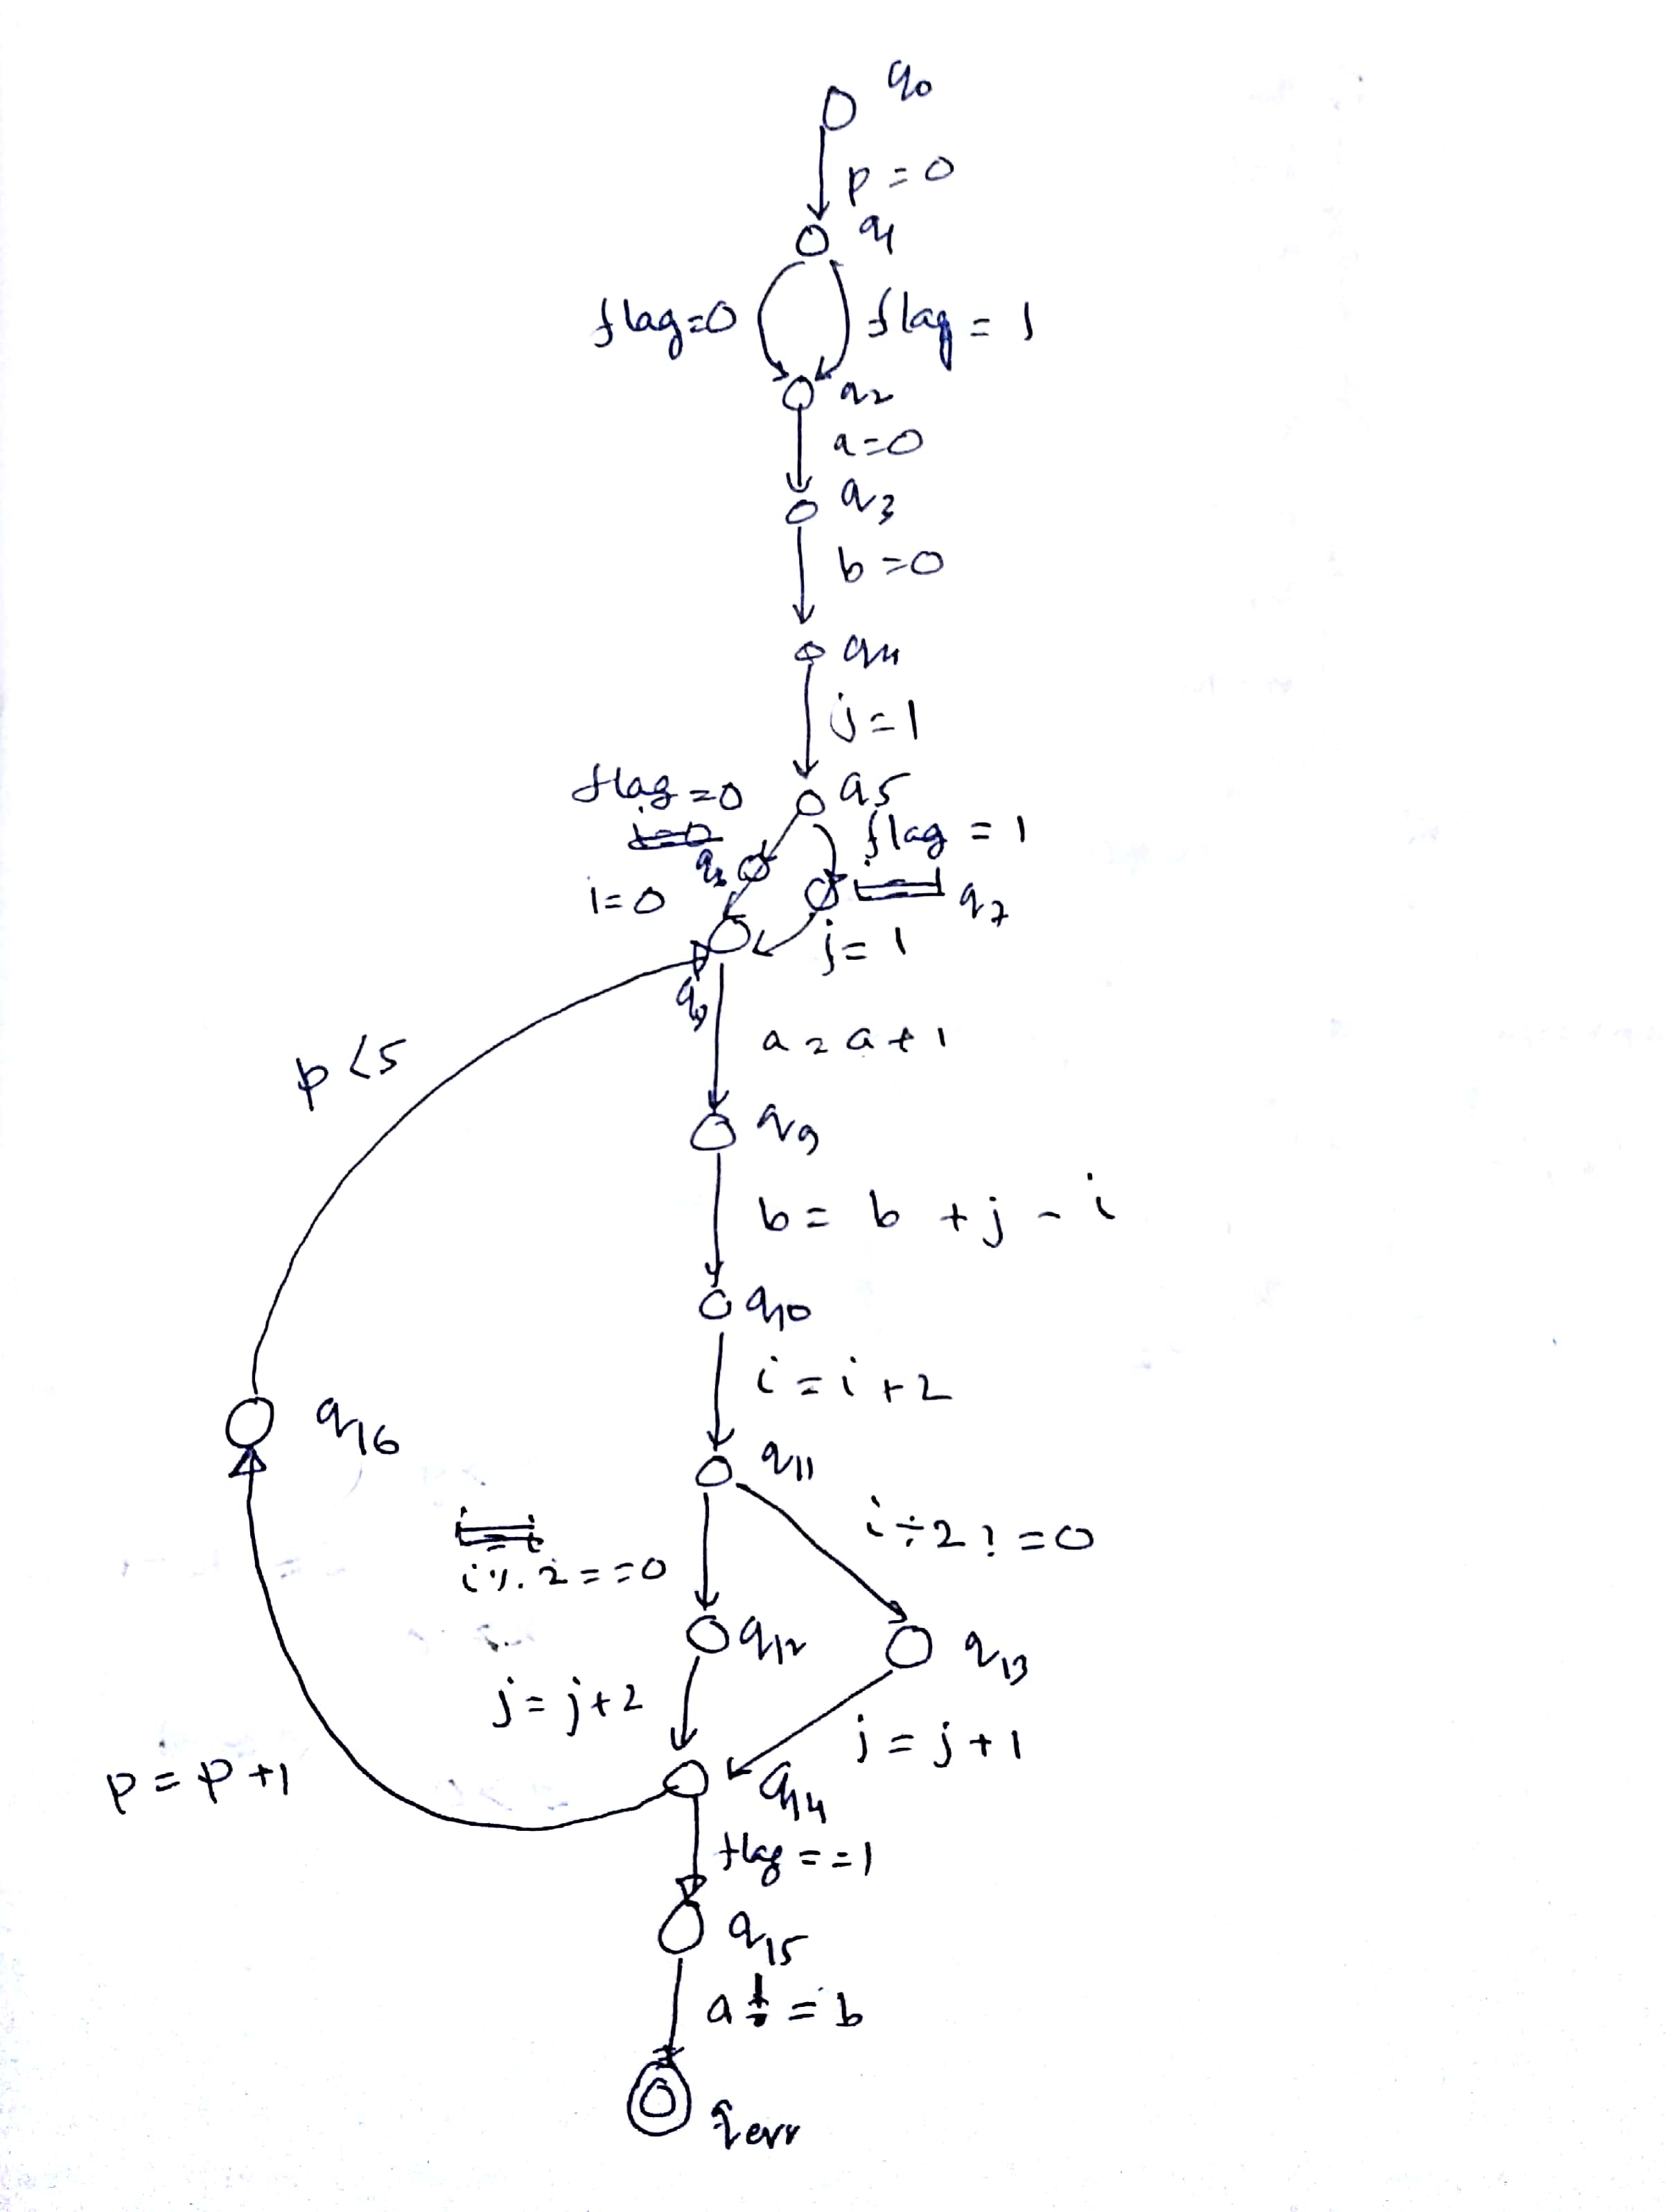 q0
p = 0
q1
flag=0
flag = 1
q2
a=0
q3
b=0
q4
j=1
q5
flag=0
flag = 1
i=0
q7
j= 1
q8
a = a + 1
p<5
q9
b= b + j - i
q10
i = i + 2
q16
q11
i ÷ 2 ! = 0
i % 2 = = 0
q12
q13
j= j+2
j = j + 1
p = p +1
q14
flag = = 1
q15
a ! = b
qerr